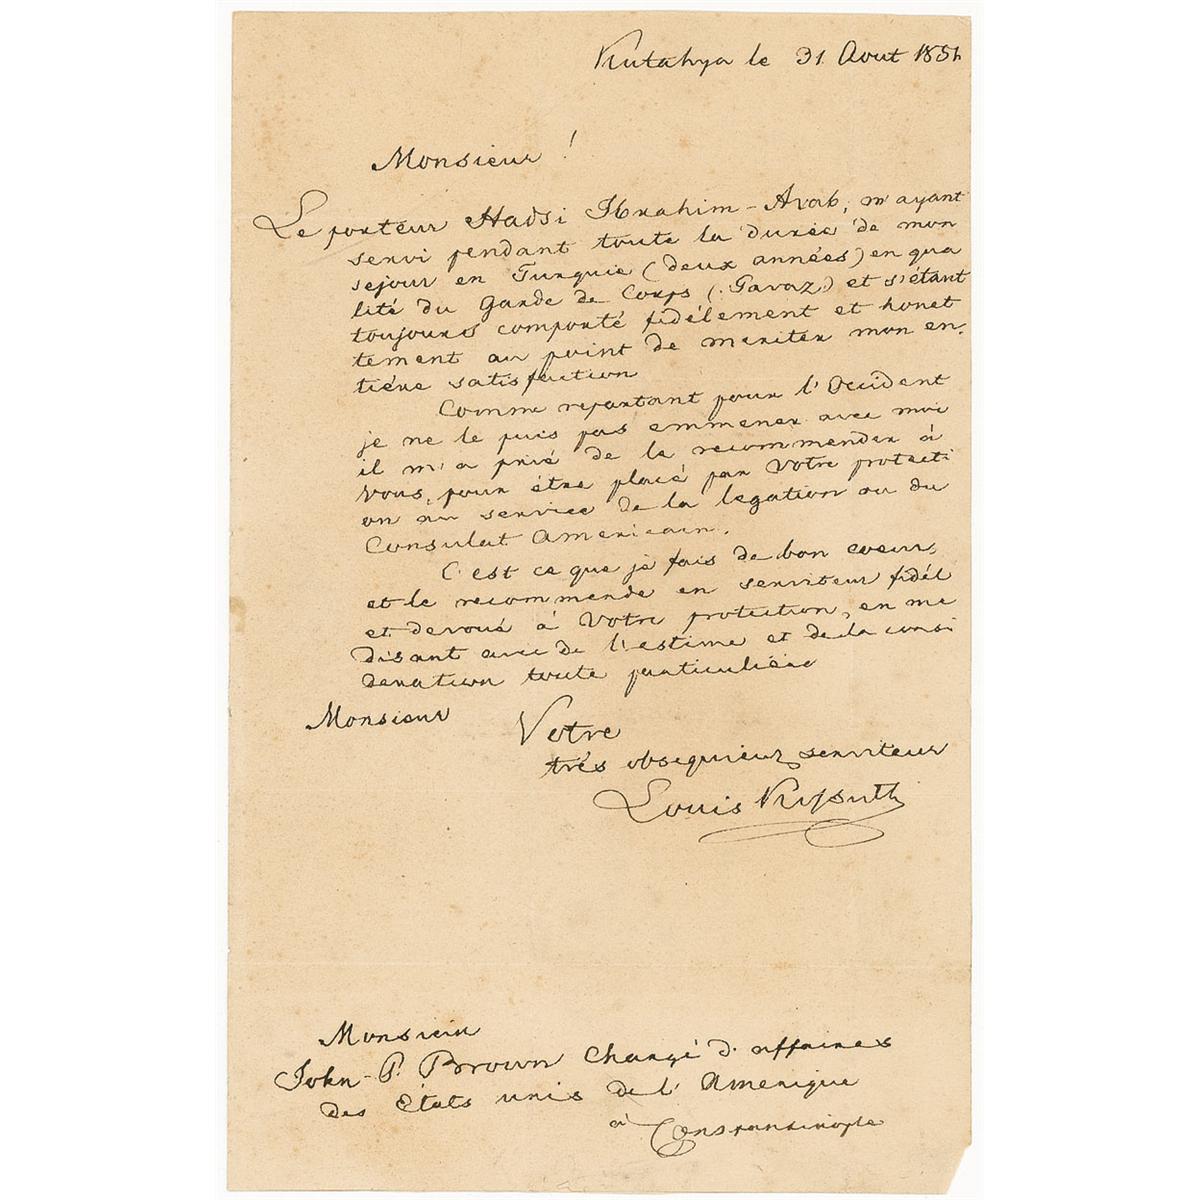 Kutahya le 31 Aout 1851
Monsieur !
Le porteur Hadsi Ibrahim-Arab, m'ayant
servi pendant toute la durée de mon
sejour en Turquie (deux années) en qua
lité du Garde de Corps (Gavaz) et s'étant
toujours comporté fidélement et honet
tement au point de meriter mon en-
tiére satisfaction
Comme repartant pour l'Occident
je ne le puis pas emmener avec moi
il m'a prié de le recommender à
Vous, pour être placé par Votre protecti
on au service de la legation ou du
Consulat Americain.
C'est ce que je fais de bon coeur,
et le recommende en serviteur fidél
et devoué à Votre protection, en me
disant avec de l'estime et de la consi
deration toute particuliére
Monsieur
Votre
trés obsequieux serviteur
Louis Kossuth
Monsieur
John P. Brown Chargé d'affaires
des Etats unis de l'Amerique
à Constantinople